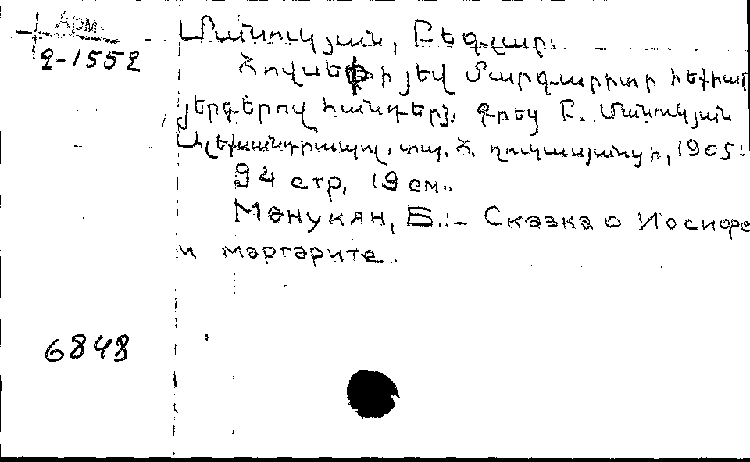 Арм.
2-1552
Մանուկյան, Բեգլար.
Հովսեփի յեվ Մարգարիտի հեքիաթ
յերգերով հանդերձ. Գրեց Բ. Մանուկյան
Ալեքսանդրապոլ, տպ. Հ. Ղուկասյանցի, 1905.
94 стр, 19 см.
Манукян, Б. - Сказка о Иосифе
и маргарите.
6848